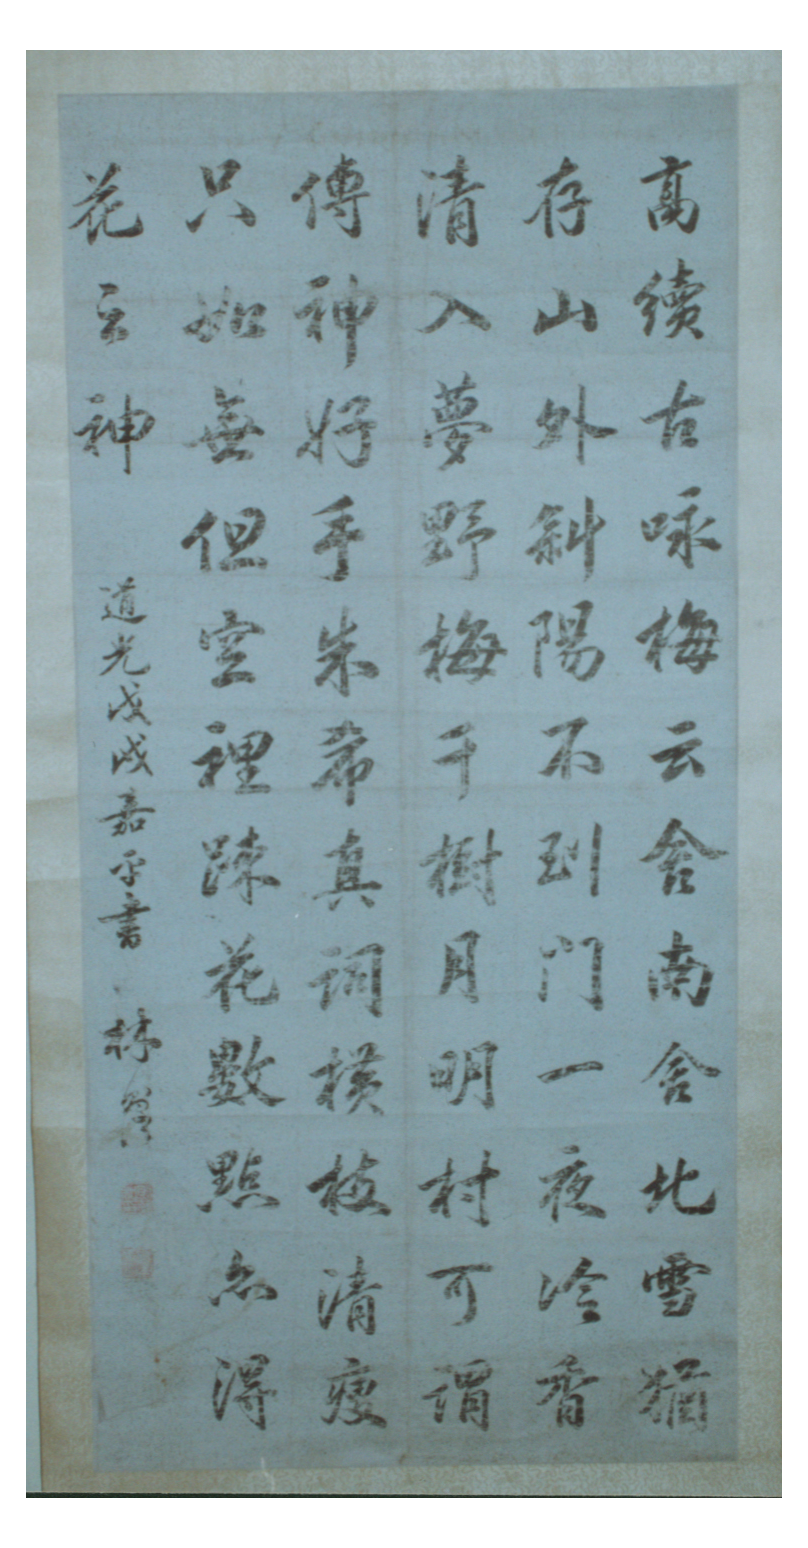 高續古咏梅云舍南舍北雪猶
存山外斜陽不到門一夜冷香
清入夢野梅千樹月明村可謂
傳神好手朱希真詞横枝清瘦
只如無但空裡疎花數點亦得
花之神
道光戊戌嘉平書
林